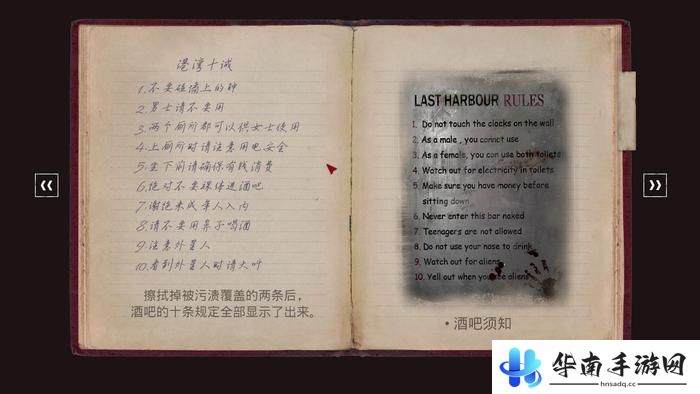 港湾十诫
1.不要碰墙上的钟
2.男士请不要用
3.两个厕所都可以供女士使用
4.上厕所时请注意用电安全
5.坐下前请确保有钱消费
6.绝对不要裸体进酒吧
7.谢绝未成年人入内
8.请不要用鼻子喝酒
9.注意外星人
10.看到外星人时请大叫
擦拭掉被污渍覆盖的两条后，
酒吧的十条规定全部显示了出来。
LAST HARBOUR RULES
1. Do not touch the clocks on the wall
2. As a male , you cannot use
3. As a female, you can use both toilets
4. Watch out for electricity in toilets
5. Make sure you have money before
sitting down
6. Never enter this bar naked
7. Teenagers are not allowed
8. Do not use your nose to drink
9. Watch out for aliens
10. Yell out when you see aliens
• 酒吧须知
华南手游网
hnsadq.cc